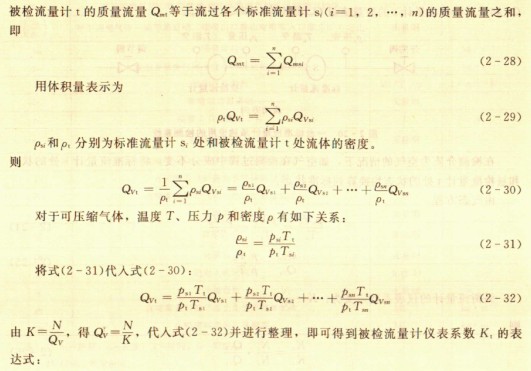 被检流量计 t 的质量流量 Qmt等于流过各个标准流量计 si(i=1，2，…，n)的质量流量之和，
即
Qmt = ∑_{i=1}^{n} Qmsi (2-28)
用体积量表示为
ρtQVt = ∑_{i=1}^{n} ρsiQVsi (2-29)
ρsi和 ρt 分别为标准流量计 si 处和被检流量计 t 处流体的密度。
则
QVt = \frac{1}{ρt} ∑_{i=1}^{n} ρsiQVsi = \frac{ρs1}{ρt} QVs1 + \frac{ρs2}{ρt} QVs2 + … + \frac{ρsn}{ρt} QVsn (2-30)
对于可压缩气体，温度 T、压力 p 和密度 ρ 有如下关系：
\frac{ρsi}{ρt} = \frac{psiTt}{ptTsi} (2-31)
将式(2-31)代入式(2-30)：
QVt = \frac{ps1Tt}{ptTs1} QVs1 + \frac{ps2Tt}{ptTs2} QVs2 + … + \frac{psnTt}{ptTsn} QVsn (2-32)
由 K=\frac{N}{QV}，得 QV=\frac{N}{K}，代入式(2-32)并进行整理，即可得到被检流量计仪表系数 Kt 的表
达式：